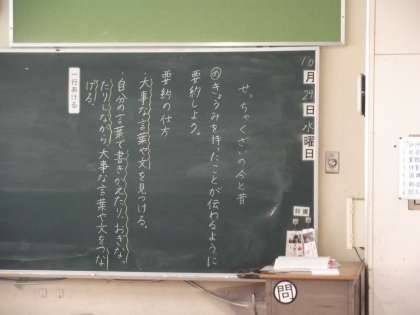 10月29日水曜日
せっちゃくざいの今と昔
めきょうみを持ったことが伝わるように
要約しよう。
要約の仕方
・大事な言葉や文を見つける。
・自分の言葉で書きかえたり、おぎな
ったりしながら大事な言葉や文をつな
げる。
一行あける
問